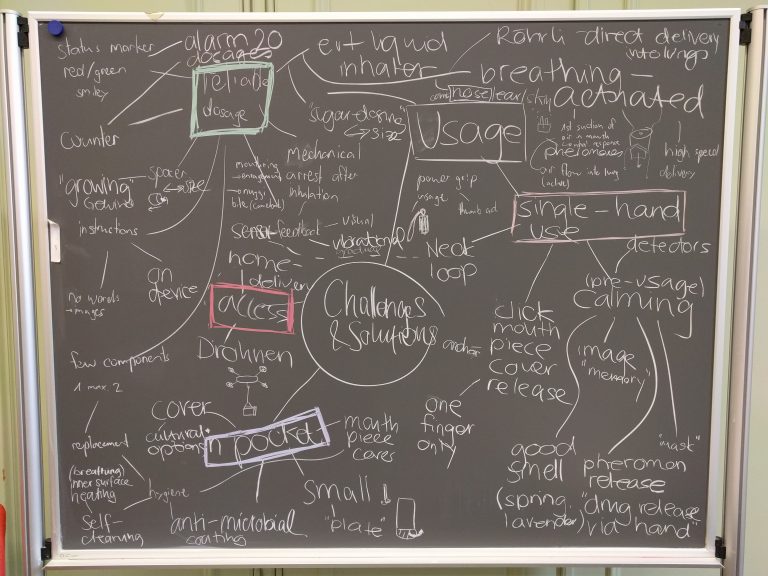 status marker
alarm 20
dosages
red/green
smiley
reliable
dosage
counter
ext liquid
inhaler
Röhrli - direct delivery
into lungs
breathing -
activated
nose/ear/skin
"sugar-dosing"
size
Usage
1st suction of
air in mouth
pheromones
air flow into lung
(active)
high speed
delivery
mechanical
arrest after
inhalation
"growing"
spacer
size
instructions
on
device
no words
→ images
feedback
visual
vibrational
power grip
usage
thumb
single-hand
use
neck
loop
detectors
home-
delivery
access
Drohnen
Challenges
& Solutions
anchor
(pre-usage)
calming
image
"memory"
click
mouth
piece
cover
release
few components
1 max. 2
replacement
(breathing)
inner surface
heating
self-
cleaning
hygiene
cover
cultural
options
in pocket
anti-microbial
coating
mouth
piece
small
"plate"
one
finger
only
good
smell
(spring,
lavender)
pheromon
release
"drug release
via hand"
"mask"